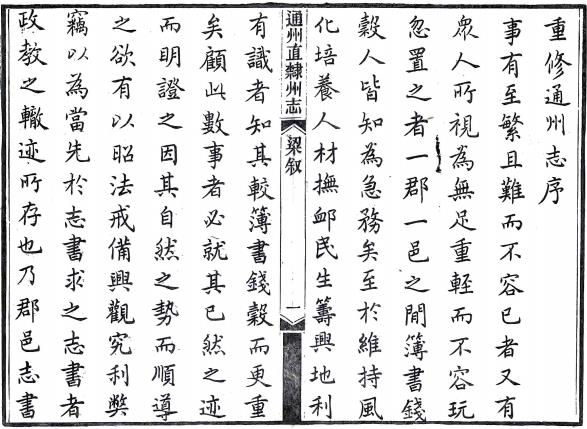 重修通州志序
事有至繁且難而不容已者又有
衆人所視為無足重輕而不容玩
忽置之者一郡一邑之間簿書錢
穀人皆知為急務矣至於維持風
化培養人材撫卹民生籌興地利
通州直隸州志
梁叙
一
有識者知其較簿書錢穀而更重
矣顧此數事者必就其已然之迹
而明證之因其自然之勢而順導
之欲有以昭法戒備興觀究利獘
竊以為當先於志書求之志書者
政教之轍迹所存也乃郡邑志書